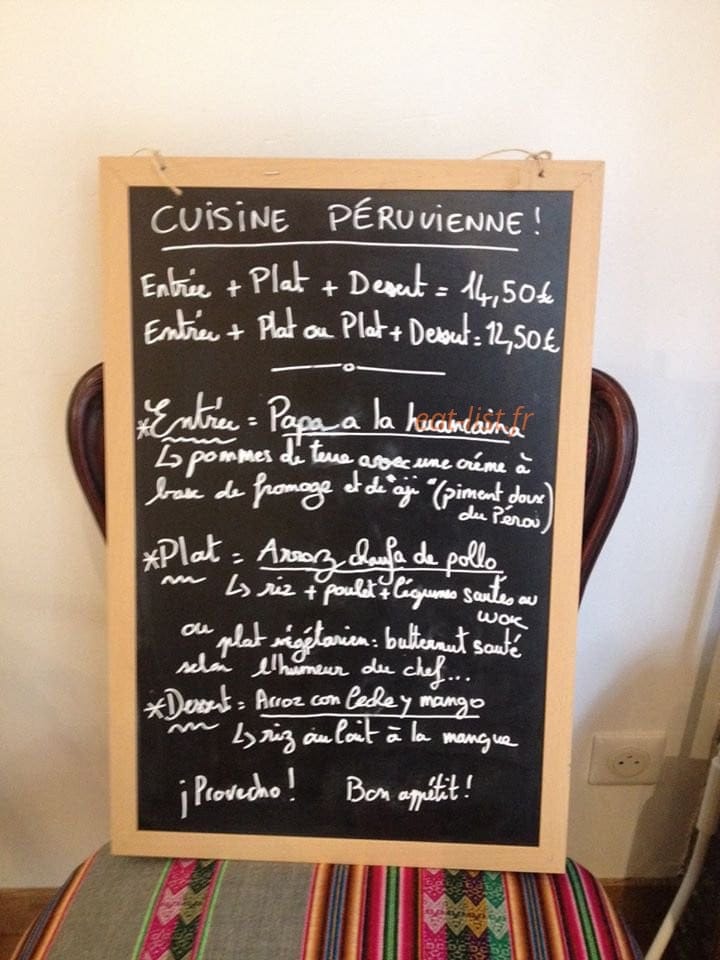 CUISINE PÉRUVIENNE!
Entrée + Plat + Dessert = 14,50€
Entrée + Plat ou Plat + Dessert = 12,50€
*Entrée = Papa a la huancaina
eat-list.fr
↳ pommes de terre avec une crème à
base de fromage et de "aji" (piment doux
du Pérou)
*Plat = Arroz chaufa de pollo
↳ riz + poulet + légumes sautés au
wok
ou plat végétarien: butternut sauté
selon l'humeur du chef...
*Dessert = Arroz con leche y mango
↳ riz au lait à la mangue
¡Provecho! Bon appétit!